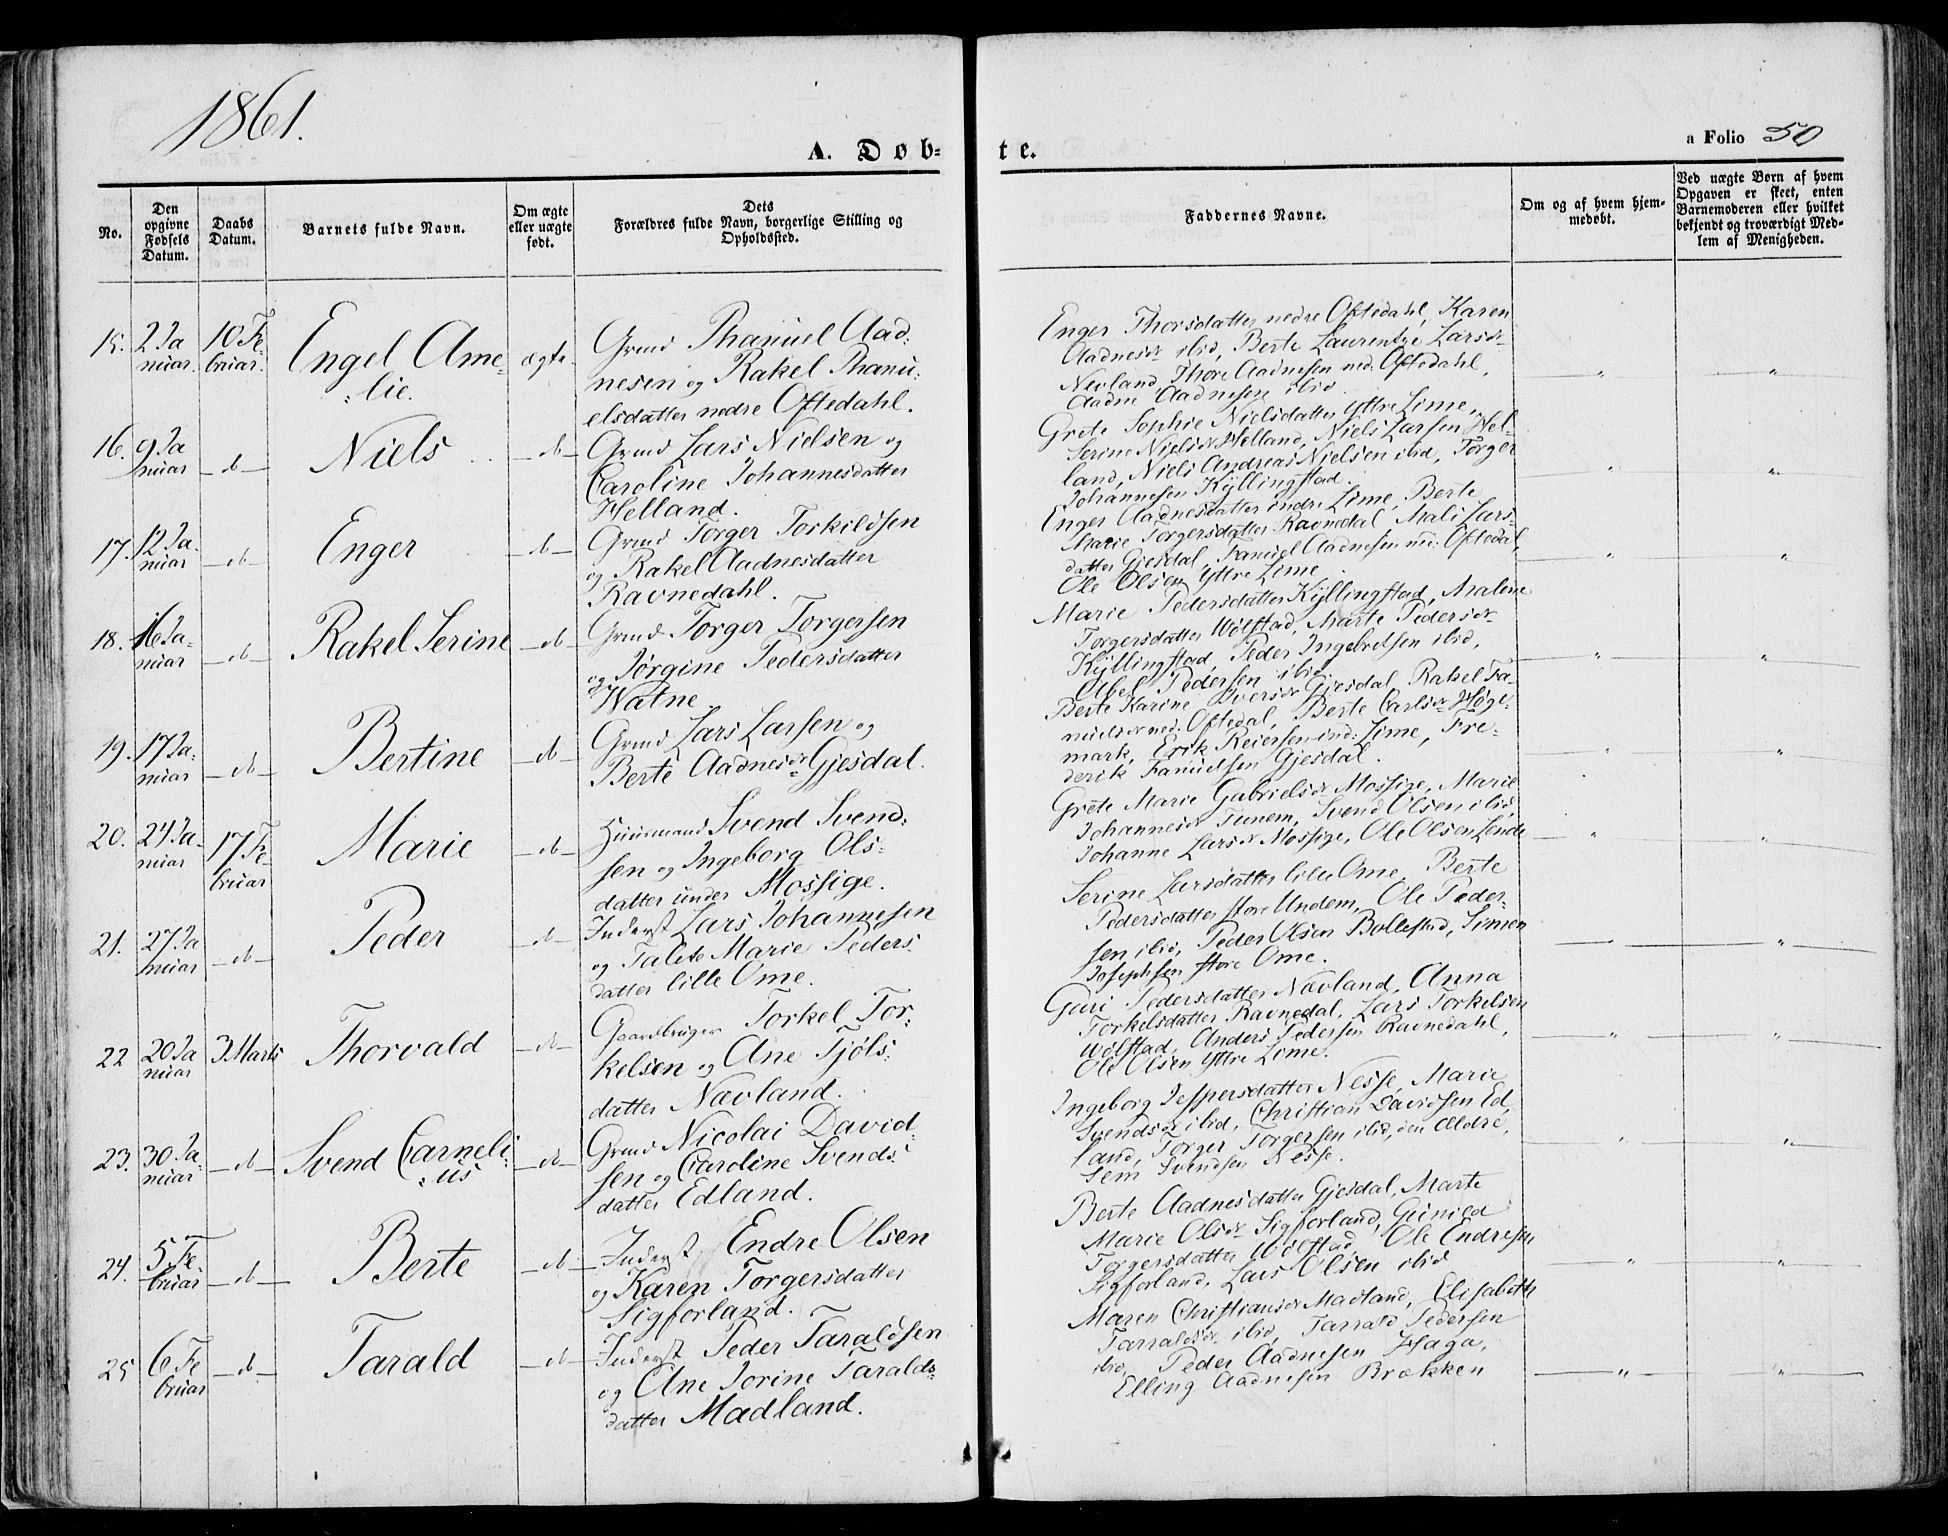 1861.
A. Døb-
te.
a Folio 50
No.
Den
opgivne
Fødsels
Datum.
Daabs
Datum.
Barnets fulde Navn.
Om ægte
eller uægte
født.
Dets
Forældres fulde Navn, borgerlige Stilling og
Opholdssted.
Faddernes Navne.
Om og af hvem hjem-
medøbt.
Ved uægte Børn af hvem
Opgaven er skeet, enten
Barnemoderen eller hvilket
bekjendt og troværdigt Med-
lem af Menigheden.
15. 2 Ja
nuar. 10 Fe-
bruar. Engel Ame-
lie. ægte
Grmd Phanuel Aad-
nesen og Rakel Phanu-
elsdatter nedre Oftedahl.
Enger Thorsdatter nedre Oftedahl, Karen
Aadnesdr ibid, Berte Laurentze Larsdr
Nevland, Thore Aadnesen ned. Oftedahl,
Aadne Aadnesen ibid
16. 9 Ja
nuar — d — Niels — d —
Grmd Lars Nielsen og
Caroline Johannesdatter
Helland.
Grete Sophie Nielsdatter Yttre Lime,
Serine Nielsdr Helland, Niels Larsen Hel-
land, Niels Andreas Nielsen ibid, Torger
Johannesen Kyllingstad.
17. 12 Ja-
nuar — d — Enger — d —
Grmd Torger Torkildsen
og Rakel Aadnesdatter
Ravnedahl.
Enger Aadnesdatter indre Lime, Berte
Marie Torgersdatter Ravnedal, Mali Lars-
datter Gjesdal, Fanuel Aadnesen ned: Oftedal,
Ole Olsen Yttre Lime
18. 16 Ja-
nuar — d — Rakel Serine — d —
Grmd Torger Torgersen
og Jørgine Pedersdatter
Watne
Marie Pedersdatter Kyllingstad, Malene
Torgersdatter Wølstad, Marte Pedersdr
Kyllingstad, Peder Ingebretsen ibid,
Abel Pedersen ibid
19. 17 Ja-
nuar — d — Bertine — d —
Grmd Lars Larsen og
Berte Aadnesdr Gjesdal.
Berte Karine Iversdr Gjesdal, Rakel Fa-
nuelsdr ned. Oftedal, Berte Carlsdr Høge-
mark, Erik Reiersen ind: Lime, Fre-
derik Fanuelsen Gjesdal.
20. 24 Ja-
nuar 17 Fe-
bruar Marie — d —
Huusmand Svend Svend-
sen og Ingeborg Ols-
datter under Mossige.
Grete Marie Gabrielsdr Mossige, Marie
Johannesdr Tunem, Svend Olsen ibid,
Johanne Larsdr Mossige, Ole Olsen Lende
21. 27 Ja
nuar — d — Peder — d —
Inderst Lars Johannesen
og Talete Marie Peders
datter lille Ome.
Serine Larsdatter lille Ome, Berte
Pedersdatter store Undem, Ole Peder-
sen ibid, Peder Olsen Bollestad, Simon
Josephsen store Ome.
22 20 Ja
nuar 3 Marts Thorvald — d —
Gaardbruger Torkel Tor-
kelsen og Ane Tjøls-
datter Nævland.
Guri Pedersdatter Nævland, Anna
Torkelsdatter Ravnedal, Lars Torkelsen
Wølstad, Anders Pedersen Ravnedahl,
Ole Olsen Yttre Lime.
23. 30 Ja-
nuar — d — Svend Carneli-
us — d —
Grmd Nicolai David-
sen og Caroline Svends-
datter Edland.
Ingeborg Jespersdatter Nesse, Marie
Svendsdr ibid, Christian Davidsen Ed
land, Torger Torgersen ibid, den ældre,
Sem Svendsen Nesse.
24. 5 Fe-
bruar — d — Berte — d —
Inderst Endre Olsen
og Karen Torgersdatter
Sigforland.
Berte Aadnesdatter Gjesdal, Marte
Marie Olsdr Sigforland, Gunild
Torgersdatter Wølstad, Ole Endresen
Sigforland, Lars Olsen ibid
25 6 Fe
bruar — d — Tarald — d —
Inderst Peder Taraldsen
og Ane Jorine Taralds-
datter Madland.
Maren Christiansdr Madland, Elisabeth
Tarraldsdr ibid, Tarrald Pedersen
ibid, Peder Aadnesen Haga,
Elling Aadnesen Brækken